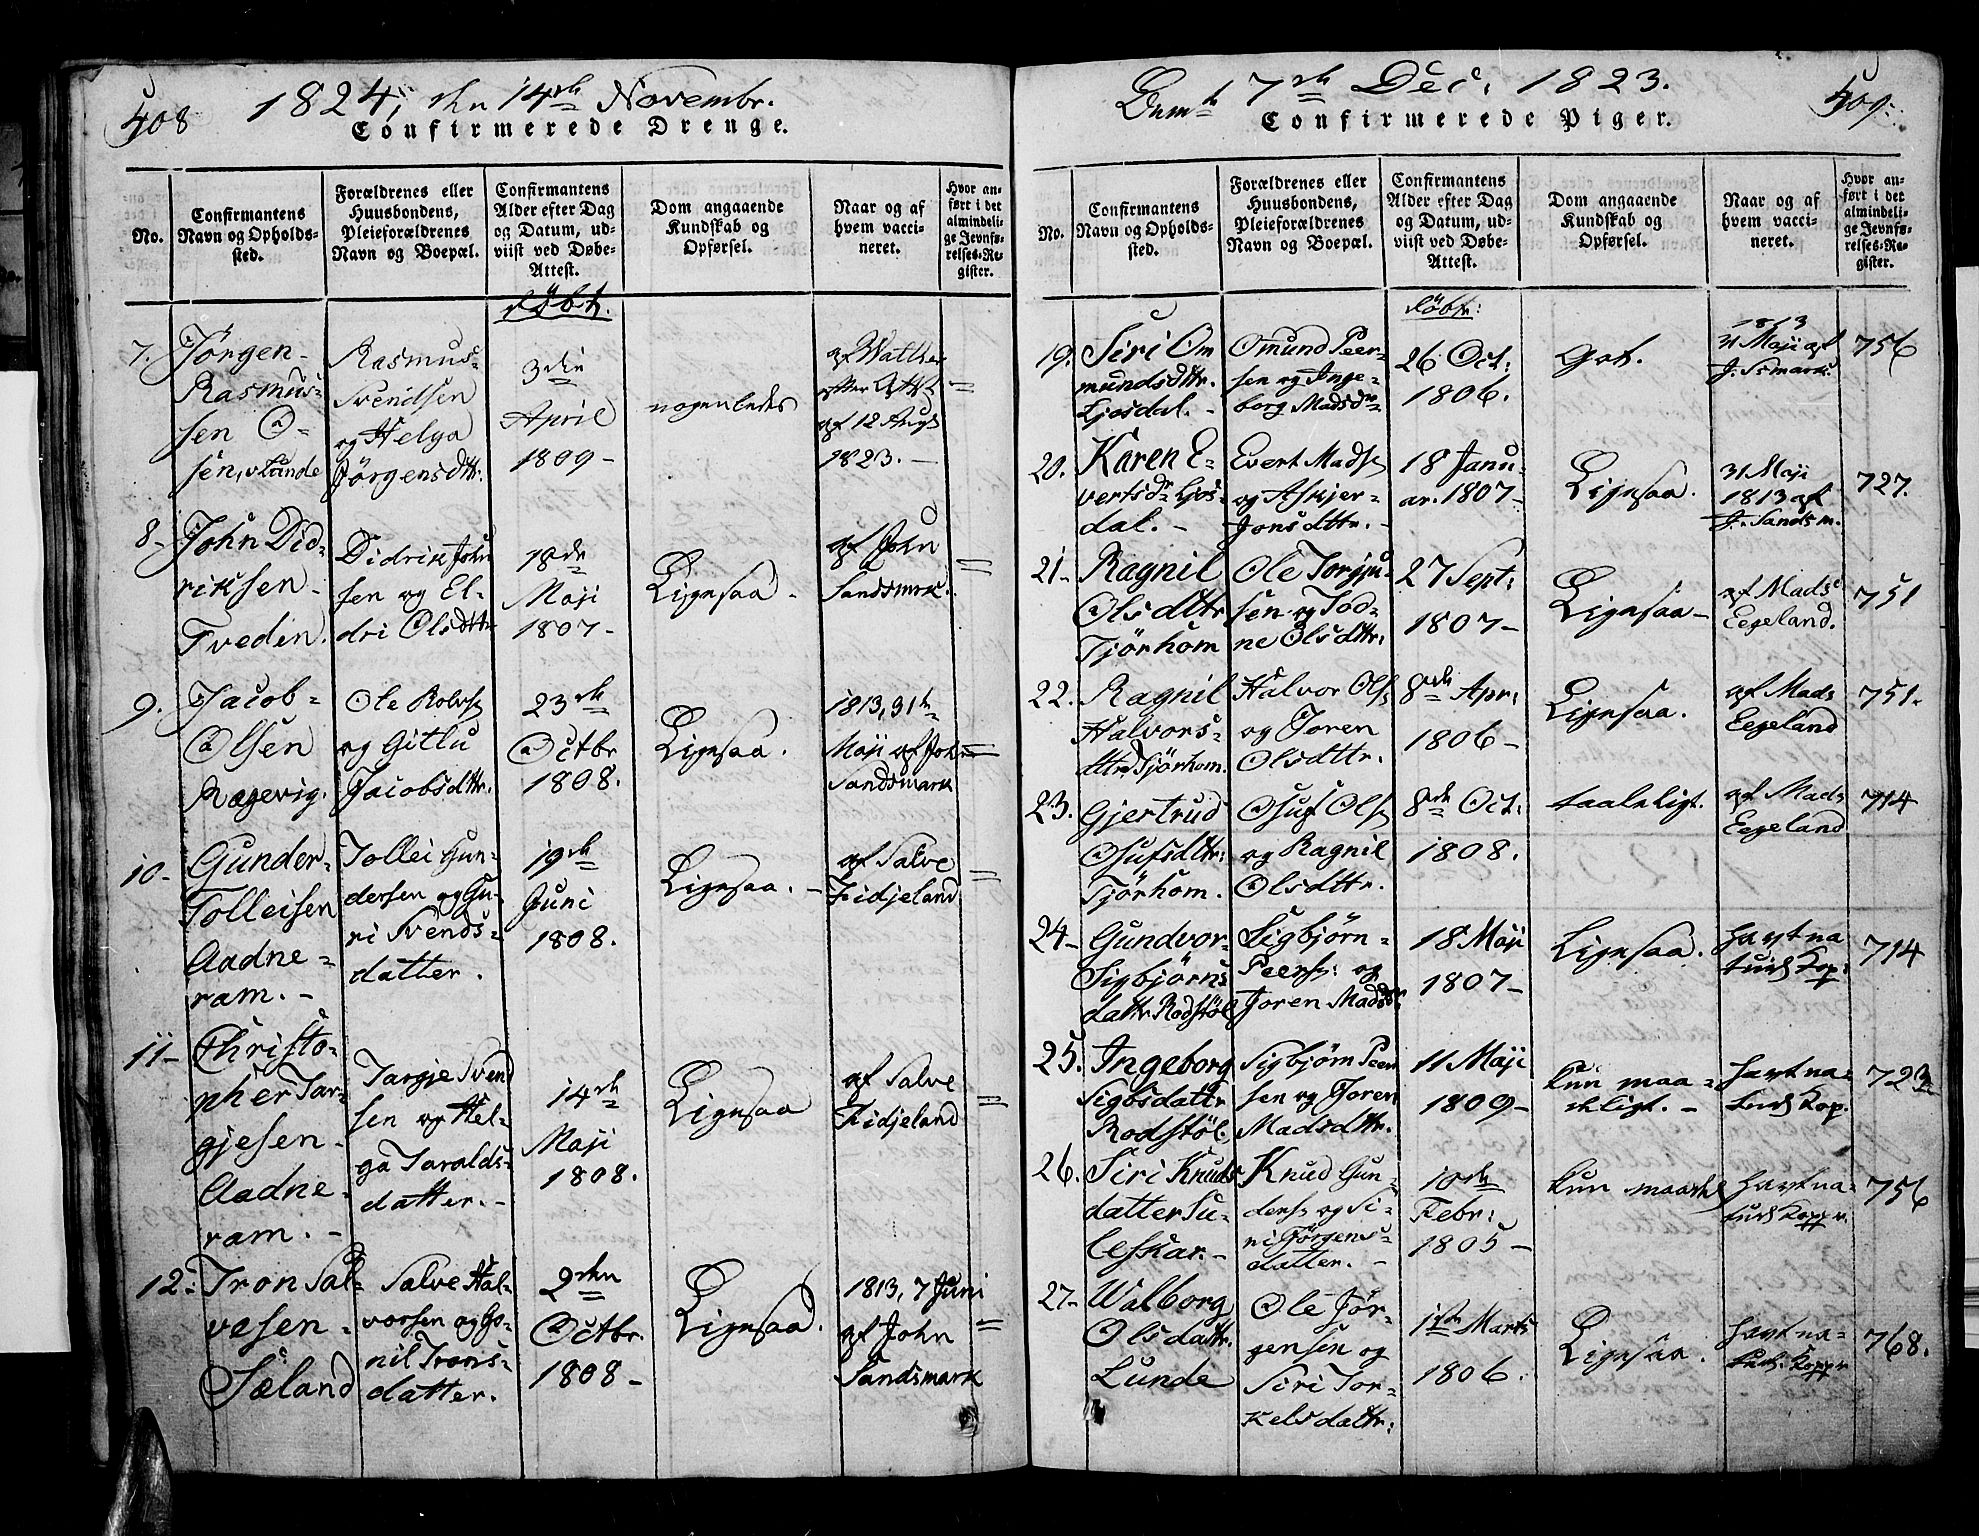 408
1824, den 14de Novembr.
Confirmerede Drenge.
No.
Confirmantens
Navn og Opholds-
sted.
Forældrenes eller
Huusbondens,
Pleieforældrenes
Navn og Boepæl.
Confirmantens
Alder efter Dag
og Datum, ud-
viist ved Døbe-
Attest.
Dom angaaende
Kundskab og
Opførsel.
Naar og af
hvem vacci-
neret.
Hvor an-
ført i det
almindeli-
ge Jevnfø-
relses-Re-
gister.
døbt.
7.
Jørgen
Rasmus-
sen O-
sen, v Lunde
Rasmus
Svendsen
og Helga
Jørgensdttr.
3die
April
1809 -
nogenledes
af Walther
efter Attst
af 12 Augs
1823. -
=
8 -
John Did-
riksen
Tveden.
Didrik John
sen og El-
dri Olsdttr
18de
Maji
1807 -
Ligesaa.
af John
Sandsmrk.
=
9.
Jacob
Olsen
Ragevig.
Ole Rolvs
og Gitlu
Jacobsdttr.
23de
Octbr
1808.
Ligesaa.
1813, 31te
Maji af John
Sandsmark
=
10 -
Gunder
Tolleisen
Aadne-
ram. -
Tollei Gun-
dersen og Gu-
ri Svends-
datter.
19de
Juni
1808.
Ligesaa. -
af Salve
Fidjeland
=
11 -
Christo-
pher Tar-
gjesen
Aadne-
ram. -
Targje Svend
sen og Hel-
ga Taralds-
datter. -
14de
Maji
1808.
Ligesaa
af Salve
Fidjeland
=
12.
Tron Sal-
vesen
Sæland
Salve Hal-
vorsen og Go-
nil Trons-
datter.
2den
Octbr.
1808 -
Ligesaa.
1813, 7 Juni
af John
Sandsmark
=
409.
7de Dec. 1823.
Confirmerede Piger.
No.
Confirmantens
Navn og Opholds-
sted.
Forældrenes eller
Huusbondens,
Pleieforældrenes
Navn og Boepæl.
Confirmantens
Alder efter Dag
og Datum, ud-
viist ved Døbe-
Attest.
Dom angaaende
Kundskab og
Opførsel.
Naar og af
hvem vacci-
neret.
Hvor an-
ført i det
almindeli-
ge Jevnfø-
relses-Re-
gister.
døbt:
19.
Siri Om
mundsdttr.
Ljosdal. -
Omund Peer-
sen og Inge-
borg Madsdr
26 Oct:
1806.
god.
1813
31 Maji af
J. Ssmark
756
20.
Karen E-
vertsdr Ljos-
dal. -
Evert Mads
og Askjer
Jonsdttr. -
18 Janu-
ar. 1807 -
Ligesaa.
31 Maji
1813 af
J. Sandsm.
727.
21 -
Ragnil
Olsdttr
Tjørhom
Ole Torgju-
sen og Tod-
ne Olsdttr:
27 Sept:
1807 -
Ligesaa -
af Mads
Eegeland.
751
22.
Ragnil
Halvors-
dttr Tjørhom.
Halvor Ols
og Joren
Olsdttr.
8de Apr:
1806 -
Ligesaa.
af Mads
Eegeland
751.
23.
Gjertrud
Osufsdttr:
Tjørhom.
Osuf Ols
og Ragnil
Olsdttr.
8de Oct:
1808.
taaleligt.
af Mads
Eegeland
714
24 -
Gundvor
Sigbjørns
dattr Rodstøl
Sigbjørn
Peers: og
Joren Madsdr
18 Maji
1807 -
Ligesaa.
havt na
turl Kop:
714
25.
Ingeborg
Sigbsdattr
Rodstøl.
Sigbjørn Peer
sen og Joren
Madsdttr.
11 Maji
1809 -
kun maa-
deligt. -
havt na-
turl Kop.
723
26.
Siri Knuds
datter Su-
leskar. -
Knud Gun-
ders: og Si-
ri Jørgens-
datter. -
10de
Febr:
1805 -
kun
havt na-
turl Kopp.
756
27 -
Walborg
Olsdattr.
Lunde
Ole Jør-
gensen og
Siri Tor-
kelsdattr:
1ste Marts
1806.
Ligesaa.
havt na-
turl. Kopp
768.